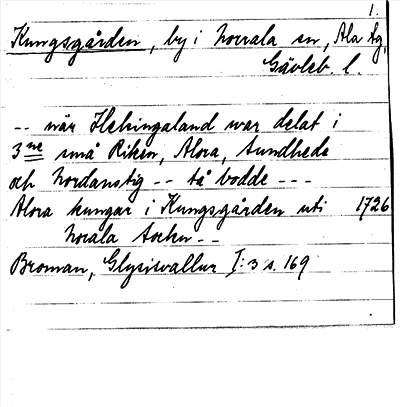 1.
Kungsgården, by i Norrala sn, Ala tg,
Gävleb. l.
-- när Helsingaland war delat i
3ne små Riken, Alora, Sundhede
och Nordanstig -- så bodde ---
Alora kungar i Kungsgården uti 1726
Norala Sochn --
Broman, Glysisvallur I:3 s. 169